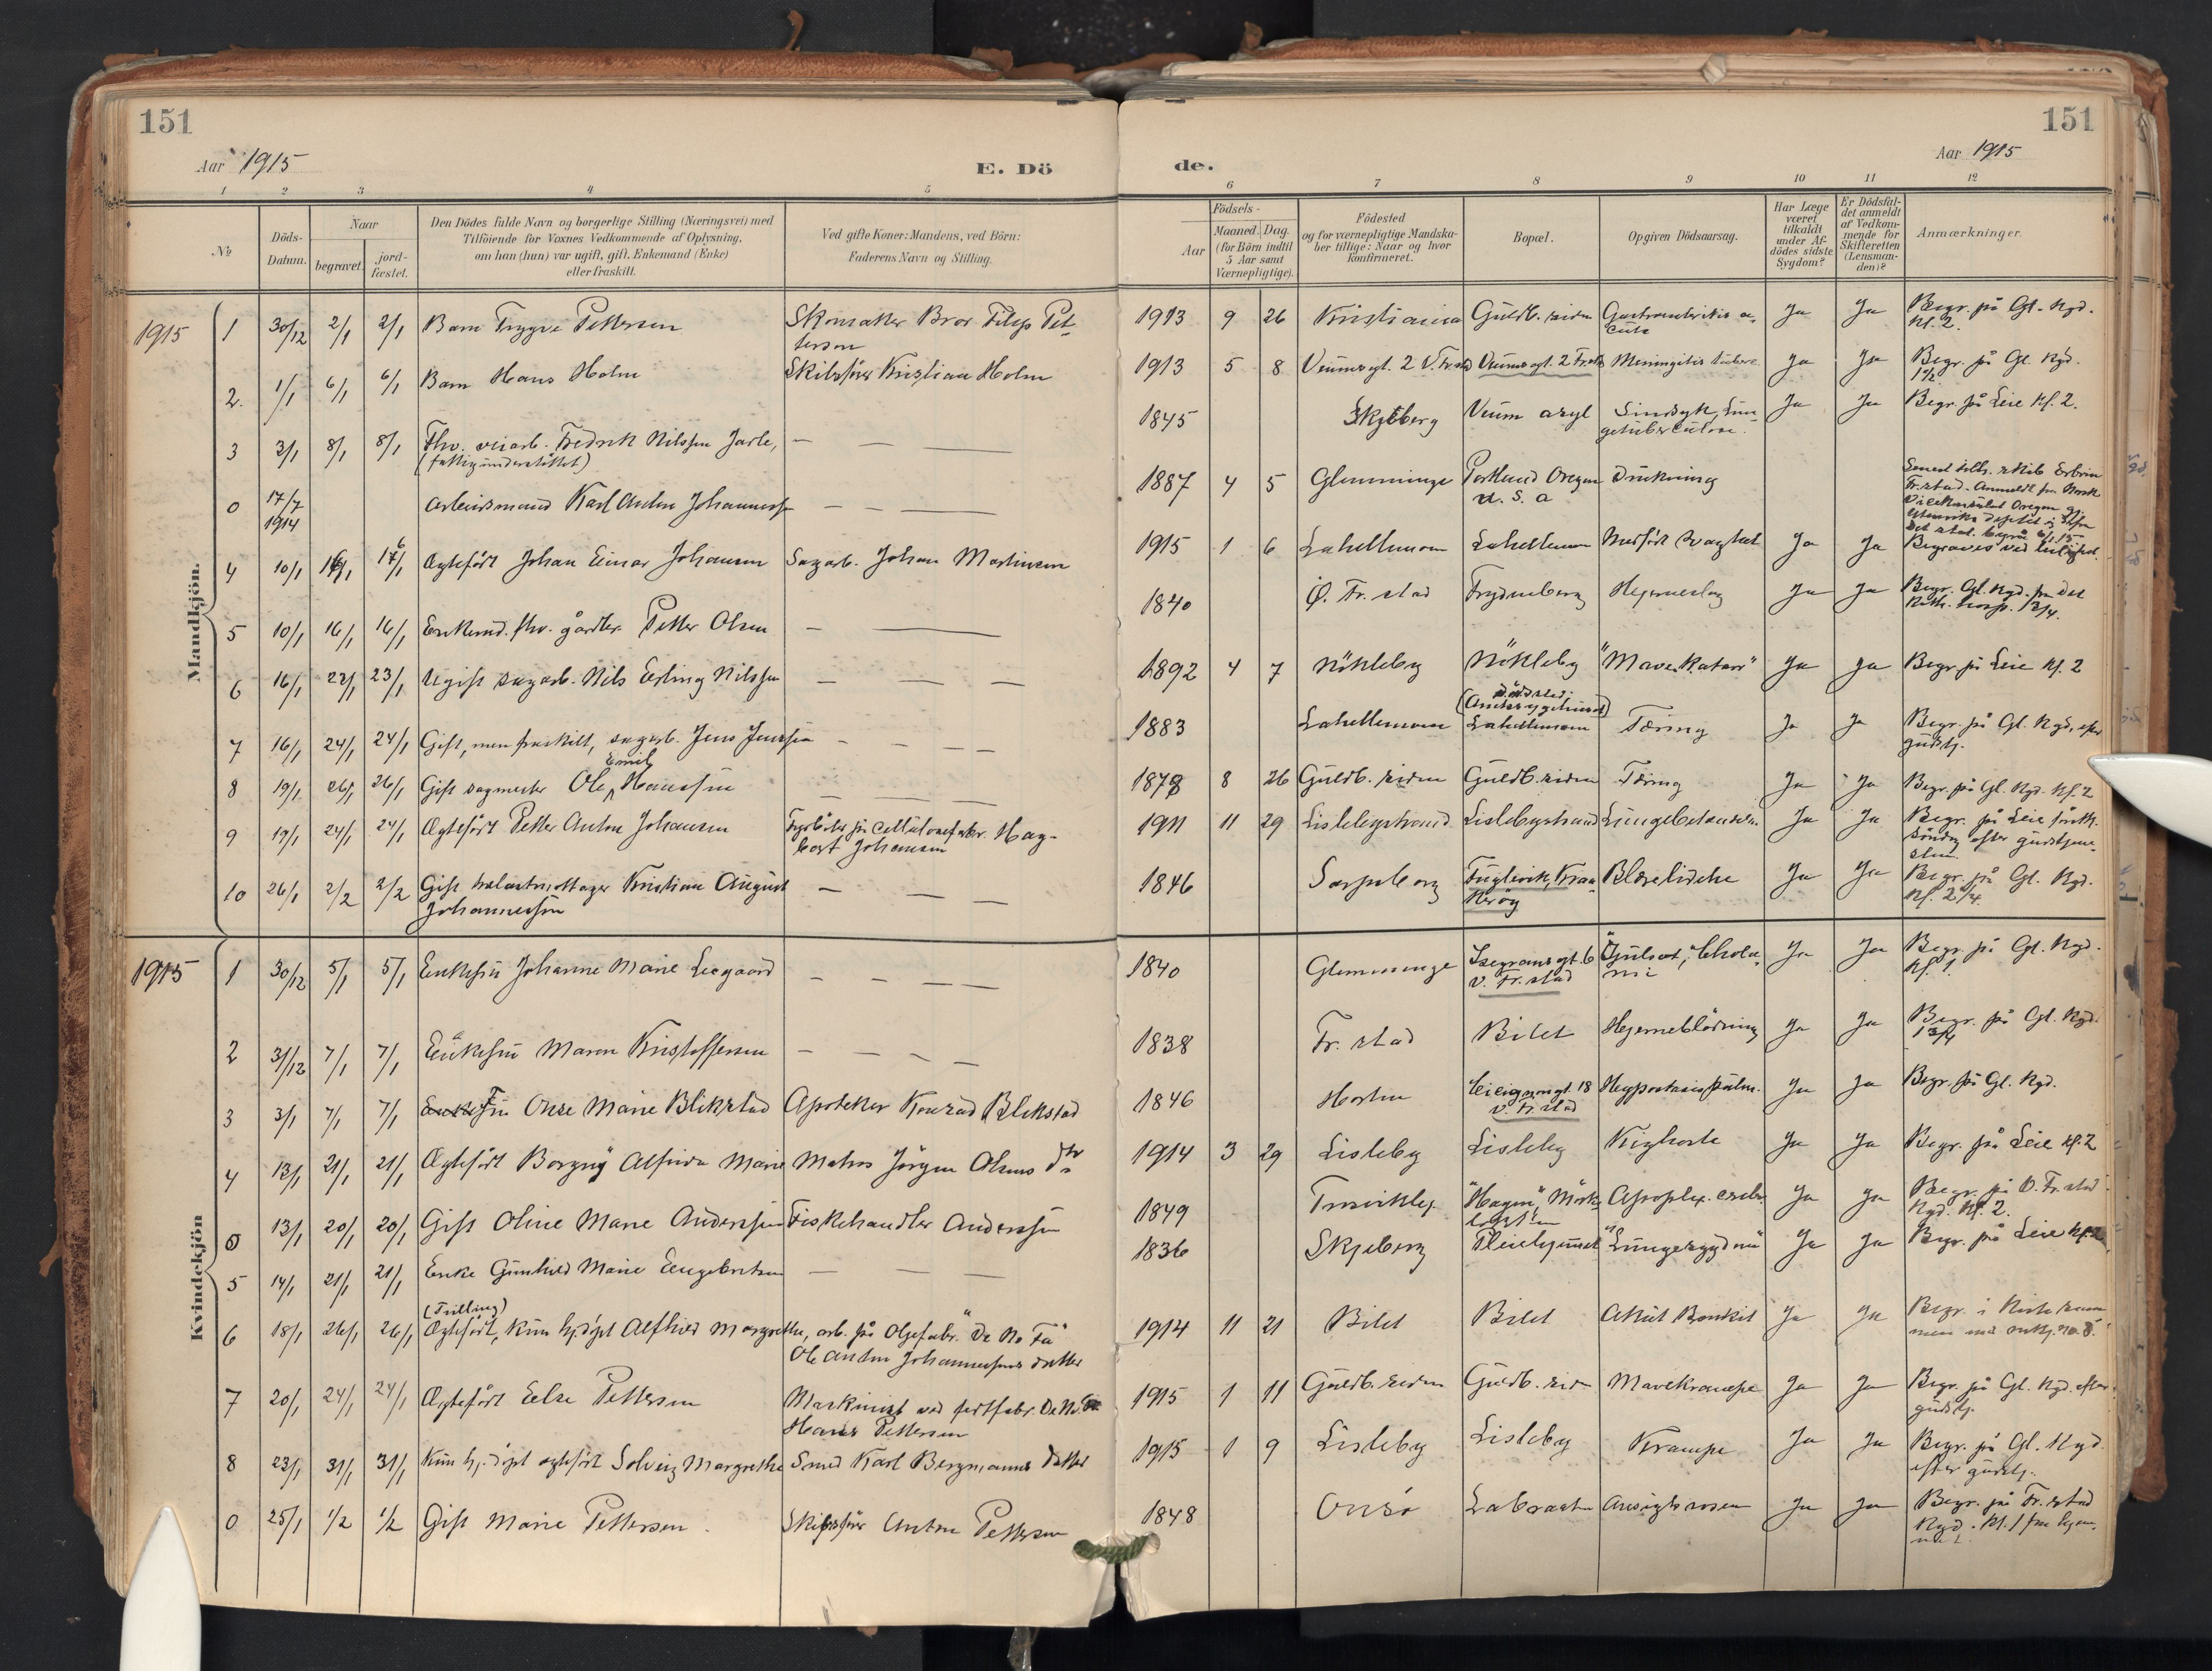 151
151
Aar 1915
E. Dö
de.
Aar 1915
1 2 3 4 5 6 7 8 9 10 11 12
№
Döds-
Datum.
Naar
begravet.
jord-
fæstet.
Den Dödes fulde Navn og borgerlige Stilling (Næringsvei) med
Tilföiende for Voxnes Vedkommende af Oplysning,
om han (hun) var ugift, gift, Enkemand (Enke)
eller fraskilt.
Ved gifte Koner: Mandens, ved Börn:
Faderens Navn og Stilling.
Födsels-
Aar
Maaned. Dag.
(for Börn indtil
5 Aar samt
Værnepligtige).
Födested
og for værnepligtige Mandska-
ber tillige: Naar og hvor
Konfirmeret.
Bopæl.
Opgiven Dödsaarsag.
Har Læge
været
tilkaldt
under Af-
dödes sidste
Sygdom?
Er Dödsfal-
det anmeldt
af Vedkom-
mende for
Skifteretten
(Lensman-
den)?
Anmærkninger.
Mandkjön.
1915 1 30/12 2/1 2/1 Barn Trygve Pettersen Skomaker Bror Filip Pet- 1913 9 26 Kristiania Guldb. siden Ja Ja Begr. på Gl. Kgd.
tersen Kl. 2.
2. 1/1 6/1 6/1 Barn Hans Holm Skibsfører Kristian Holm 1913 5 8 Veumsgt. 2 V. Fr.stad Veumsgt. 2 Fr.stad Meningitis Ja Ja Begr. på Gl. Kgd.
3 3/1 8/1 8/1 Fhv. Fredrik Nilssen Jarle, — — 1845 Skjeberg Veum asyl Sindsyk, Lun- Ja Ja Begr. på Leie Kl. 2.
(fattigunderstöttet) getuberculose.
0 17/7 Arbeidsmand Karl Anton Johannessen — — — 1887 4 5 Glemminge Portland Oregon Drukning
1914 U. S. A
4 10/1 16/1 17/1 Ægtefödt Johan Einar Johansen Sagarb. Johan Martinsen 1915 1 6 Lahellemoen Lahellemoen Medfödt svaghet Ja Ja Begraves ved leilighed.
5 10/1 16/1 16/1 Enkemd. fhv. gårdbr. Petter Olsen — — 1840 Ö. Fr. stad Frydenberg Hjerneslag Ja Ja Begr. Gl. Kgd. fra det
Kath. hosp.
6 16/1 22/1 23/1 Ugift sagarb. Nils Erling Nilssen — — — 1892 4 7 Nökleby Nökleby "Mave Katarr" Ja Ja Begr. på Leie Kl. 2
7 16/1 24/1 24/1 Gift, men fraskilt, sagarb. Jens Jenssen — — — 1883 Lahellemoen Lahellemoen Tæring Ja Ja Begr. på Gl. Kgd. efter
gudstj.
Emil
8 19/1 26/1 26/1 Gift sagmester Ole Hanssen — — — 1878 8 26 Guldb. siden Guldb. siden Tæring Ja Ja Begr. på Gl. Kgd. Kl. 2
9 19/1 24/1 24/1 Ægtefödt Petter Anton Johansen Fyrböter på Cellulosefabr. Hag- 1911 11 29 Lislebystrand Lislebystrand Lungebetændelse Ja Ja Begr. på Leie
bart Johansen söndag efter gudstjene-
sten.
10 26/1 2/2 2/2 Gift Kristian August — — — 1846 Sarpsborg Fuglevik, Kraa- Blærelidelse Ja Ja Begr. på Gl. Kgd.
Johannessen keröy
Kvindekjön
1915 1 30/12 5/1 5/1 Enkefru Johanne Marie Liegaard — — — — 1840 Glemminge Isegransgt. 6 Ja Ja Begr. på Gl. Kgd.
V. Fr. stad Kl. 1.
2 31/12 7/1 7/1 Enkefru Maren Kristoffersen — — — — 1838 Fr. stad Bilet Hjerneblödning Ja Ja Begr. på Gl. Kgd.
3 3/1 7/1 7/1 Fru Onse Marie Blikstad Apoteker Konrad Blikstad 1846 Horten Leiegangt. 18 Ja Ja Begr. på Gl. Kgd.
V. Fr. stad
4 13/1 21/1 21/1 Ægtefödt Borgny Alfrida Marie Matros Jörgen Olsens dtr 1914 3 29 Lisleby Lisleby Kighoste Ja Ja Begr. på Leie Kl. 2
0 13/1 20/1 20/1 Gift Oline Marie Anderssen Fiskehandler Anderssen 1849 "Hagen", Apoplex. cerebr. Ja Ja Begr. på Ö. Fr. stad
Kgd. Kl. 2.
5 14/1 21/1 21/1 Enke Gunhild Marie Engebretsen — — — 1836 Skjeberg Pleiehjemmet "Lungesygdom" Ja Ja Begr. på Leie Kl. 2
(Trilling)
6 18/1 26/1 26/1 Ægtefödt, kun hj.döpt Alfhild Margrethe, arb. på Oljefabr. "De No Fa" 1914 11 21 Bilet Bilet Akut Bronkit Ja Ja Begr. i Kiste sam-
Ole Anton Johannessens datter men med
7 20/1 24/1 24/1 Ægtefödt Else Pettersen Maskinist ved fettfabr. De No Fa 1915 1 11 Guldb. siden Guldb. sid. Mavekrampe Ja Ja Begr. på Gl. Kgd. efter
Hans Pettersen gudstj.
8 23/1 31/1 31/1 Kun hj.döpt ægtefödt Solveig Margrethe Smed Karl Bergmanns datter 1915 1 9 Lisleby Lisleby Krampe Ja Ja Begr. på Gl. Kgd
efter gudstj.
0 25/1 1/2 1/2 Gift Marie Pettersen. Skibsfører Anton Pettersen 1848 Onsö Labraaten Ansigtsrosen Ja Ja Begr. på Fr. stad
Kgd. Kl. 1 fra hjem-
met.